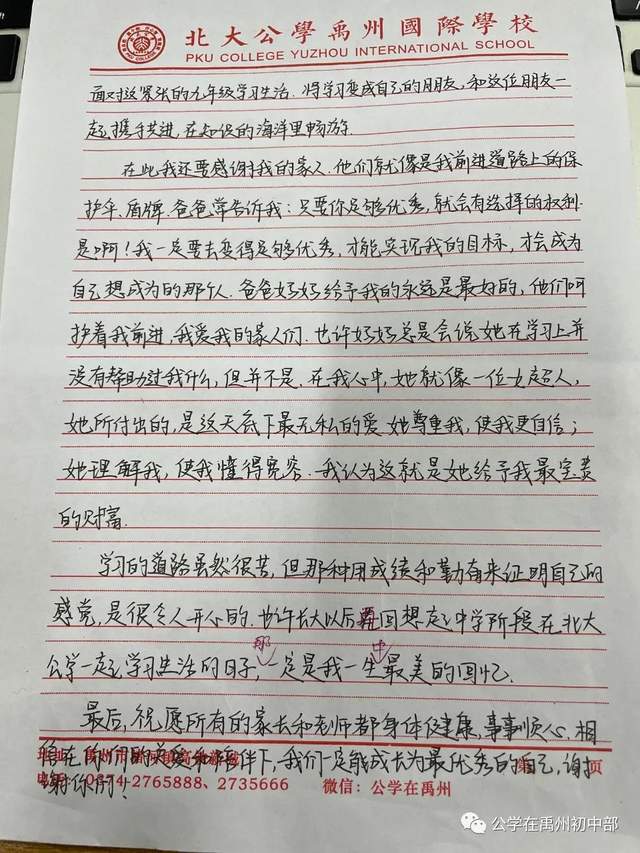 北大公學禹州國際學校
PKU COLLEGE YUZHOU INTERNATIONAL SCHOOL
面对这紧张的九年级学习生活.将学习变成自己的朋友,和这位朋友一
起携手共进,在知识的海洋里畅游.
在此我还要感谢我的家人.他们就像是我前进道路上的保
护伞、盾牌.爸爸常告诉我:只要你足够优秀,就会有选择的权利.
是啊!我一定要去变得足够优秀,才能实现我的目标,才会成为
自己想成为的那个人.爸爸妈妈给予我的永远是最好的,他们呵
护着我前进,我爱我的家人们.也许妈妈总是会说她在学习上并
没有帮助过我什么,但并不是.在我心中,她就像一位女超人,
她所付出的,是这天底下最无私的爱.她尊重我,使我更自信;
她理解我,使我懂得宽容.我认为这就是她给予我最宝贵
的财富.
学习的道路虽然很苦,但那种用成绩和勤奋来证明自己的
感觉,是很令人开心的.也许长大以后再回想起中学阶段在北大
公学一起学习生活的日子,那一定是我一生中最美的回忆.
最后,祝愿所有的家长和老师都身体健康,事事顺心.相
信在你们的关爱和陪伴下,我们一定能成长为最优秀的自己,谢
谢你们!
禹州市
页
0374-2765888、2735666
微信:公学在禹州
公学在禹州初中部